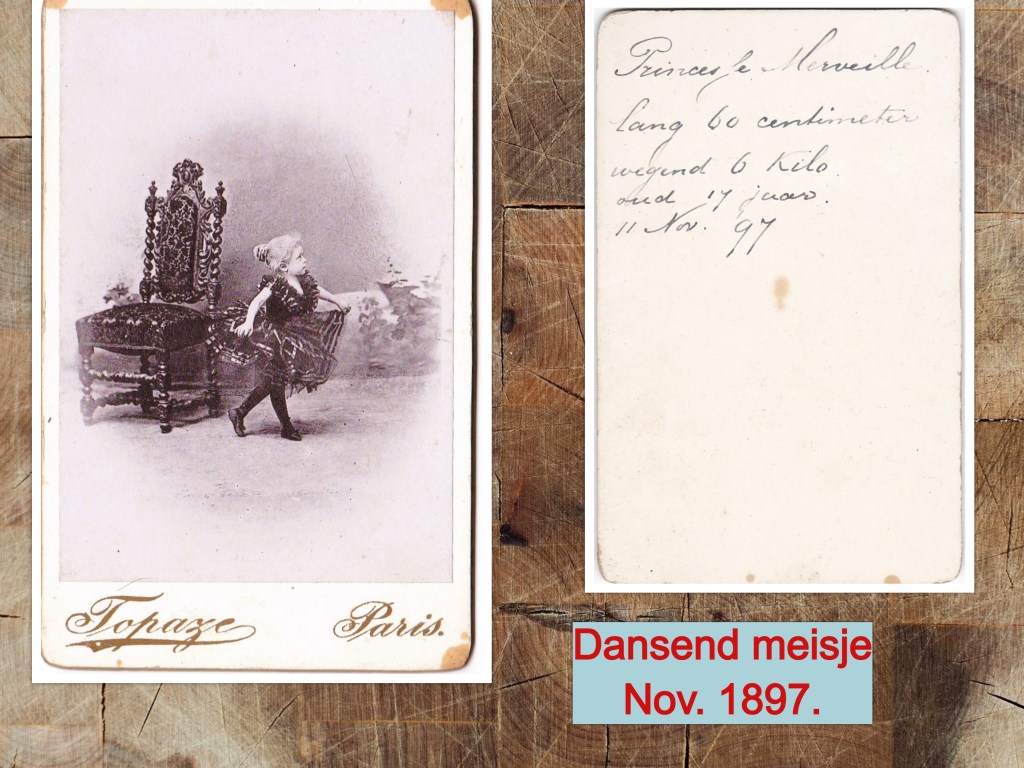 Topaze Paris.
Princes le Merveille.
lang 60 centimeter
wegend 6 Kilo.
oud 17 jaar.
11 Nov. 97
Dansend meisje
Nov. 1897.